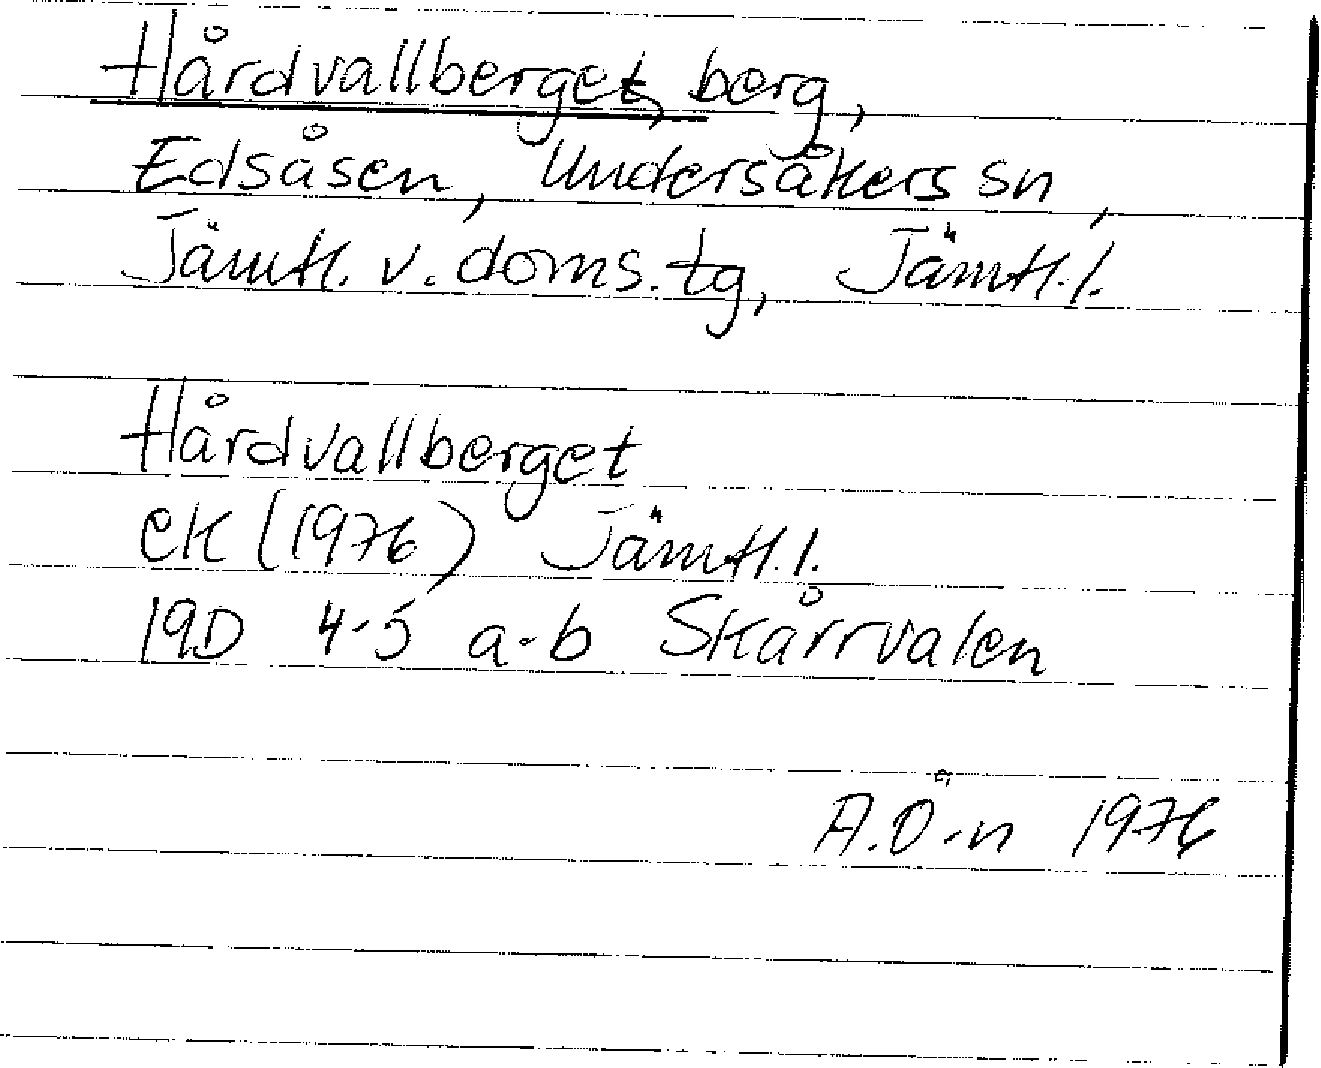 Hårdvallberget, berg,
Edsåsen, Undersåkers sn,
Jämtl. v. doms. tg, Jämtl. l.
Hårdvallberget
ek (1976) Jämtl. l.
19D 4-5 a-b Skårrvalen
A.Ö-n 1976